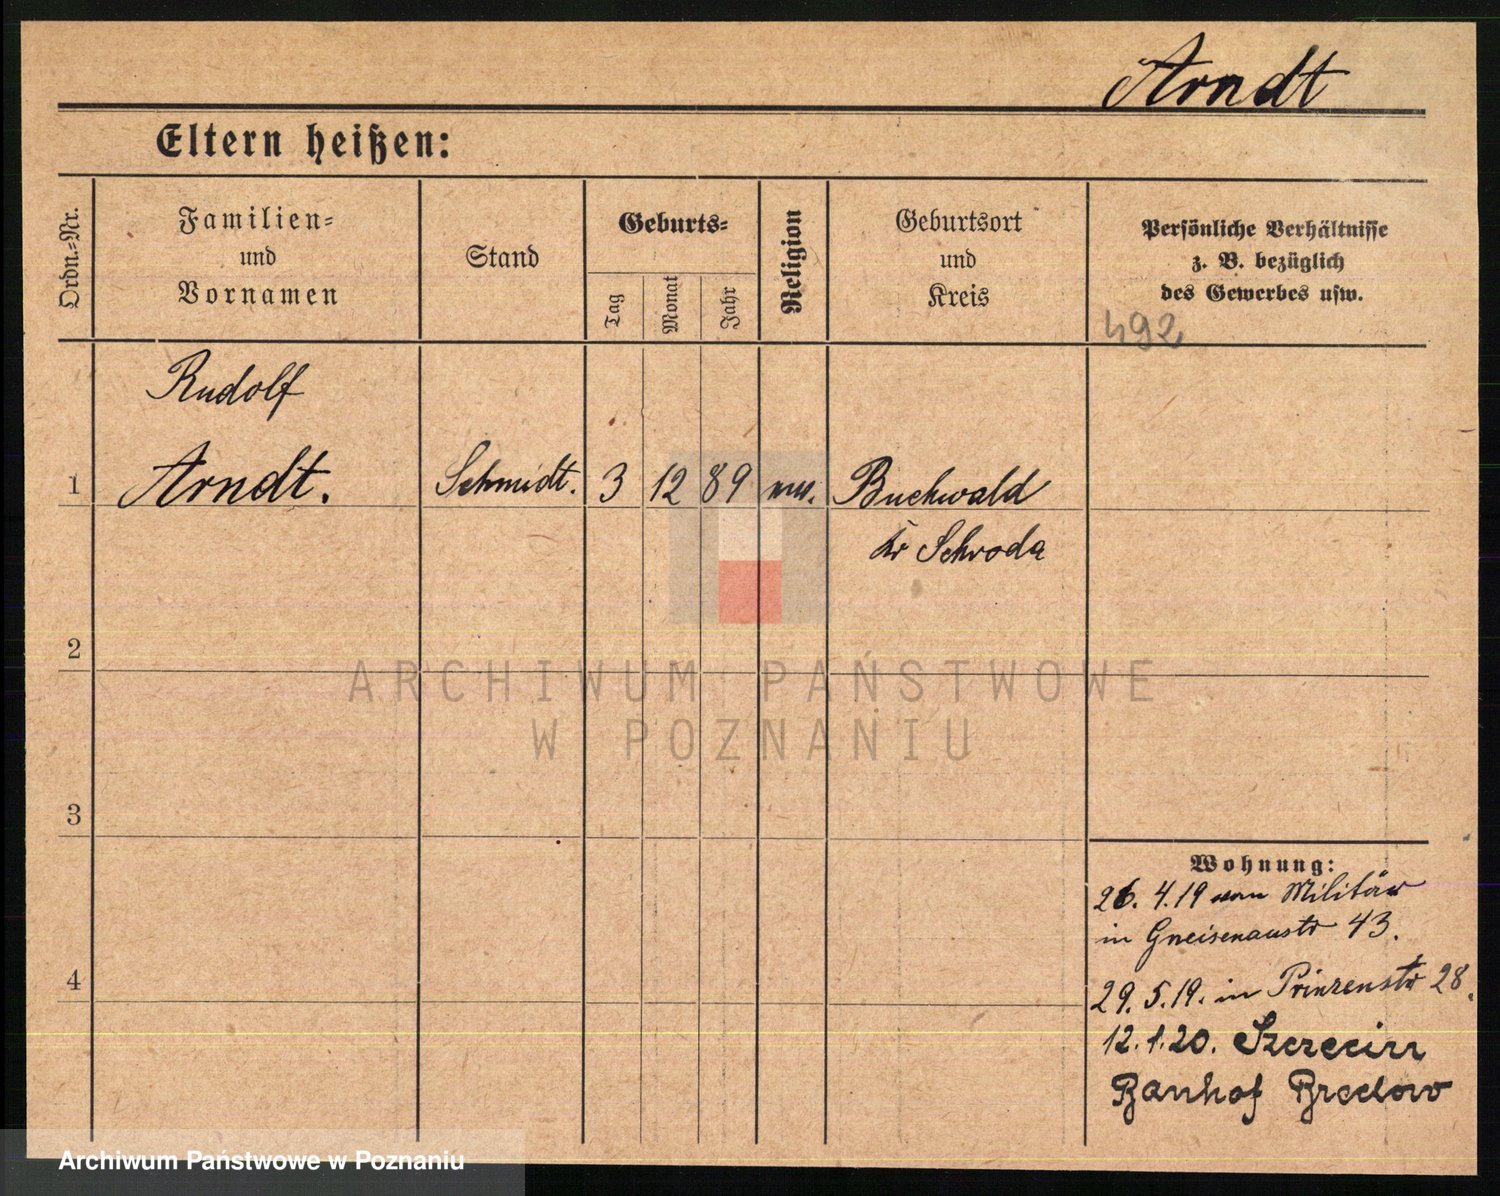 Arndt
Eltern heißen:
Ordn.-Nr.
Familien-
und
Vornamen
Stand
Geburts-
Tag
Monat
Jahr
Religion
Geburtsort
und
Kreis
Persönliche Verhältnisse
z. B. bezüglich
des Gewerbes usw.
492
Rudolf
1 Arndt. Schmidt. 3 12 89 Buchwald
Kr Schroda
2
ARCHIWUM PAŃSTWOWE
W POZNANIU
3
Wohnung:
26. 4. 19 vom Militär
in Gneisenaustr 43.
4
29. 5. 19. in Prinzenstr 28.
12. 1. 20. Szczecin
Banhof Bredow
Archiwum Państwowe w Poznaniu